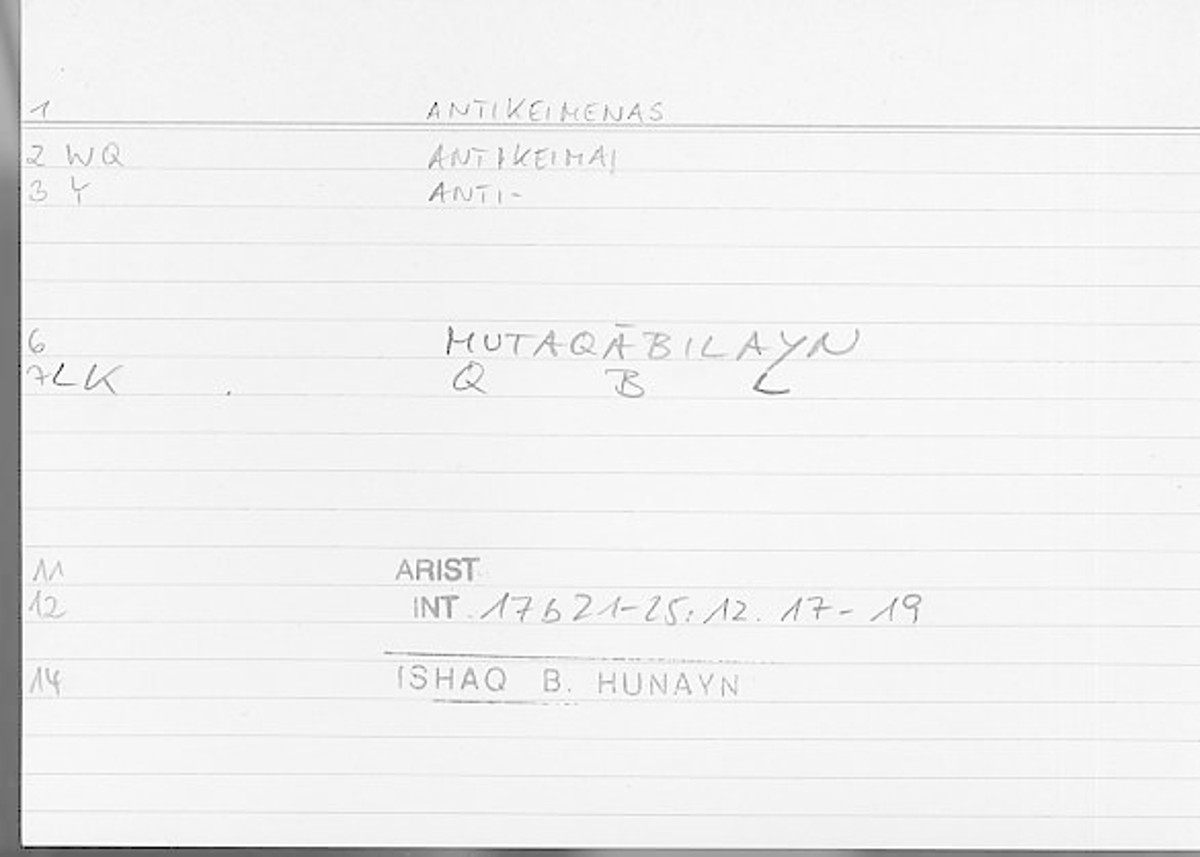 1 ANTIKEIMENAS
2 WQ ANTIKEIMAI
3 Y ANTI-
6 MUTAQĀBILAYN
7 LK Q B L
11 ARIST
12 INT. 17b21-25: 12. 17-19
14 ISHAQ B. HUNAYN